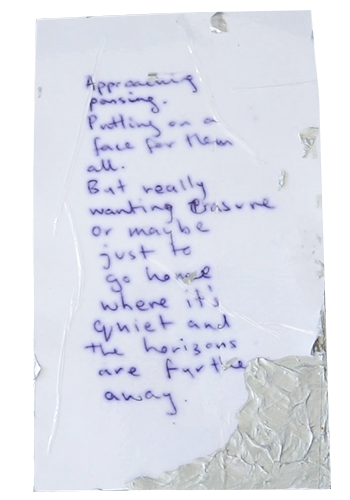 Approaching
passing.
Putting on a
face for them
all.
But really
wanting erasure
or maybe
just to
go home
where it's
quiet and
the horizons
are further
away